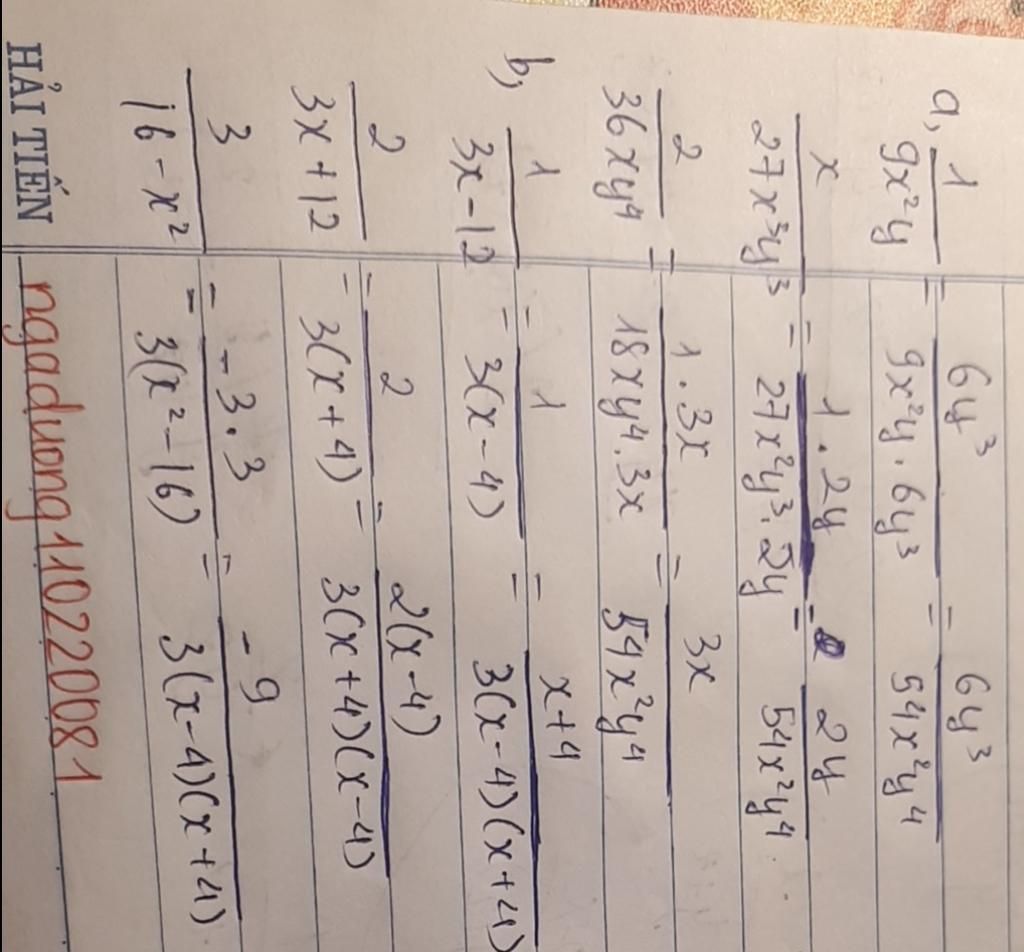 a, 1/9x²y = 6y³/9x²y.6y³ = 6y³/54x²y⁴
x/27x³y³ = 1.2y/27x²y³.2y = 2y/54x²y⁴
2/36xy⁴ = 1.3x/18xy⁴.3x = 3x/54x²y⁴
b, 1/3x-12 = 1/3(x-4) = x+4/3(x-4)(x+4)
2/3x+12 = 2/3(x+4) = 2(x-4)/3(x+4)(x-4)
3/16-x² = -3.3/3(x²-16) = -9/3(x-4)(x+4)
HẢI TIẾN ngaduong11022008 1